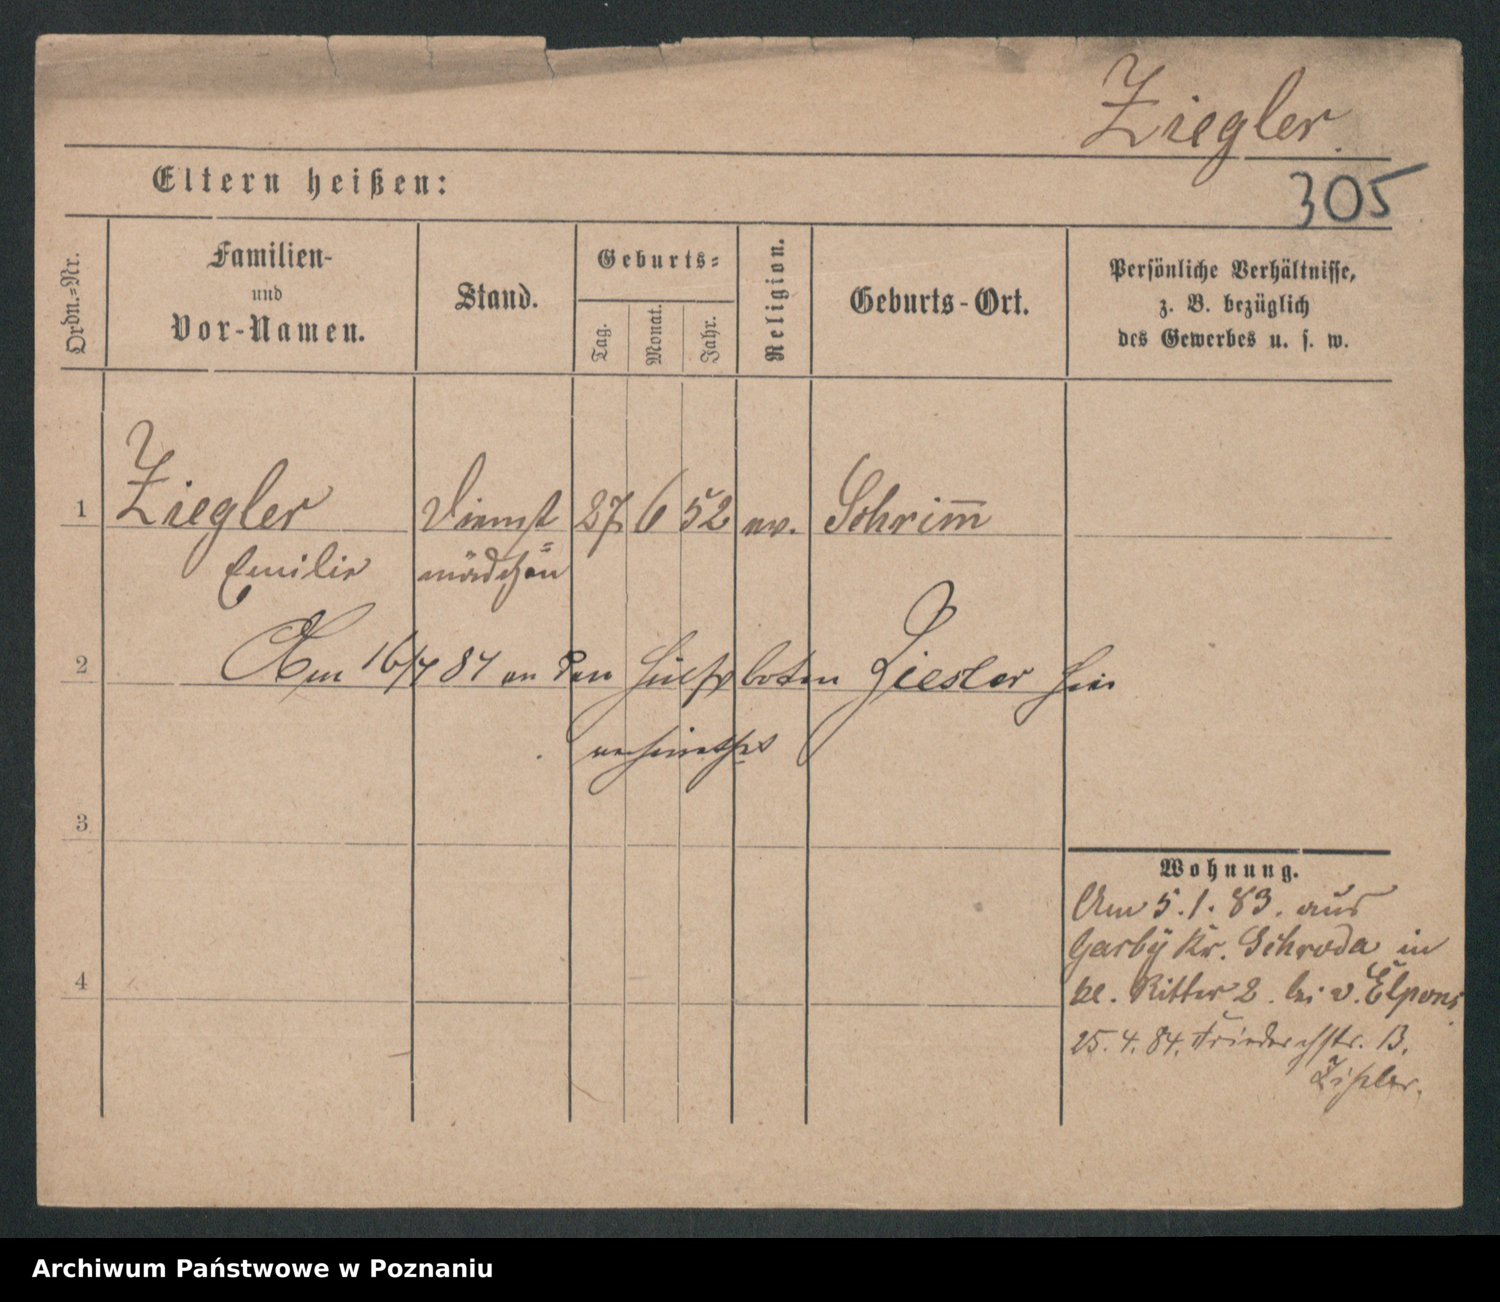 Ziegler.
305
Eltern heißen:
Ordn.=Nr.
Familien-
und
Vor-Namen.
Stand.
Geburts=
Tag.
Monat.
Jahr.
Religion.
Geburts-Ort.
Persönliche Verhältnisse,
z. B. bezüglich
des Gewerbes u. s. w.
1 Ziegler Dienst 27 6 52 ev. Schrim̅
Emilie =mädchen
2 Am 16/7 84 an den Hülfsboten Ziesler hier
verheirathet
3
Wohnung.
Am 5. 1. 83. aus
Garby Kr. Schroda in
kl. Ritter 2. bei v. Elpons
4
25. 4. 84. Friedrichstr. 13.